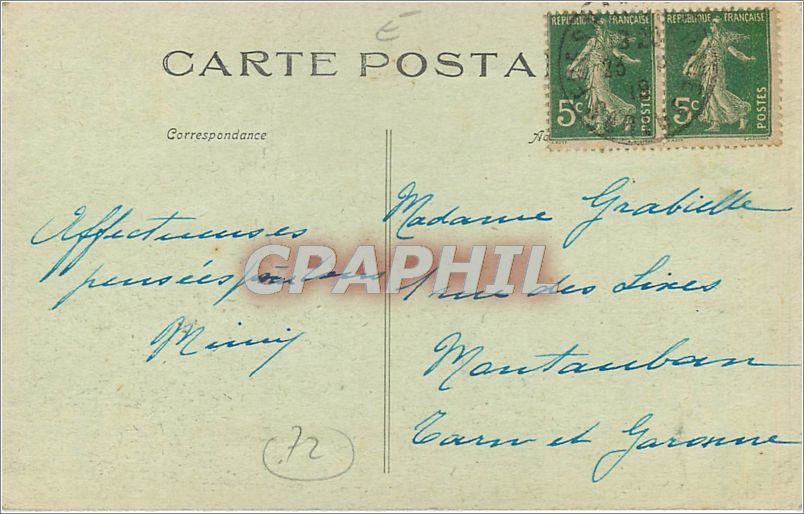 E
CARTE POSTA
REPUBLIQUE FRANÇAISE
5c
POSTES
REPUBLIQUE FRANÇAISE
5c
POSTES
Correspondance
Affectueuses
pensées
Mimy
Madame Grabielle
1 rue des Lixes
Montauban
Tarn et Garonne
CPAPHIL
72